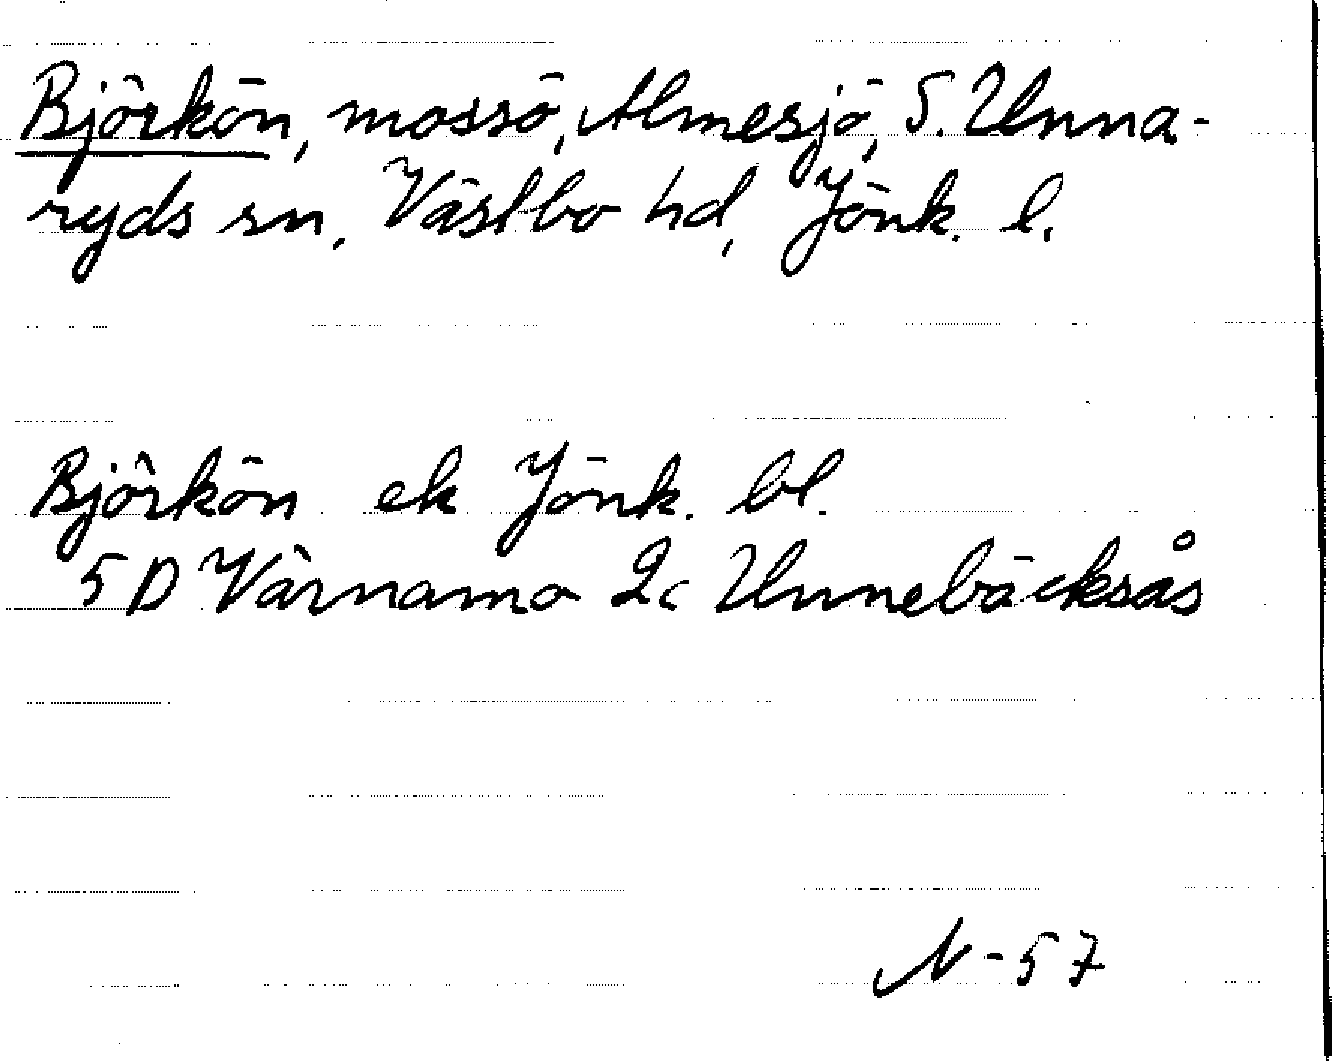 Björkön, mossö, Almesjö, S. Unna-
ryds sn, Västbo hd, Jönk. l.
Björkön ek Jönk. bl.
5 D Värnamo 2c Unnebäcksås
N-57